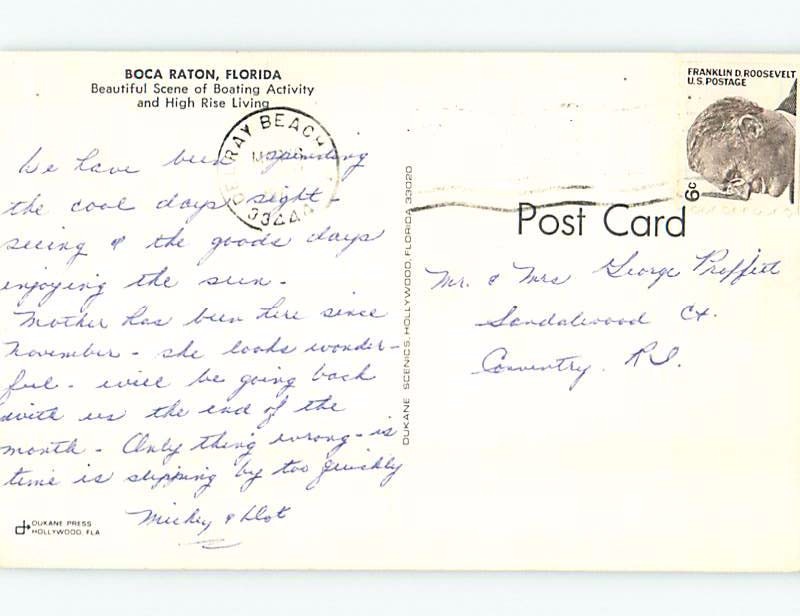 BOCA RATON, FLORIDA
Beautiful Scene of Boating Activity
and High Rise Living
We have been spending
the cool days sight-
seeing & the goods days
enjoying the sun.
Mother has been here since
November - she looks wonder-
ful - will be going back
with us the end of the
month - Only thing wrong - is
time is slipping by too quickly
Mickey & Dot
DUKANE PRESS
HOLLYWOOD, FLA
DELRAY BEACH
33444
DUKANE SCENICS, HOLLYWOOD, FLORIDA 33020
FRANKLIN D. ROOSEVELT
U.S. POSTAGE
6c
Post Card
Mr. & Mrs George Proffitt
Sandalwood Ct.
Coventry. R.I.